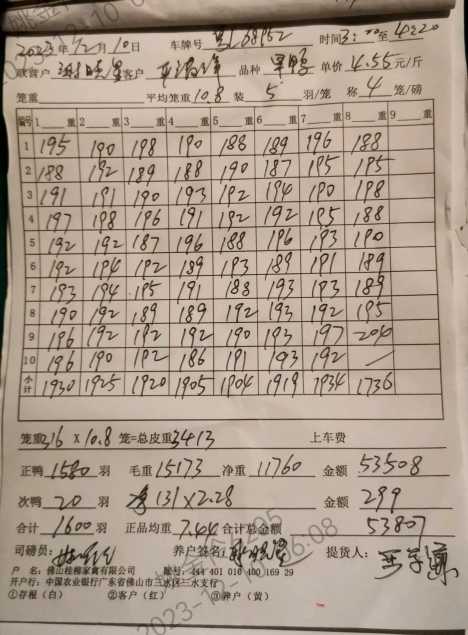 2023年12月10日 车牌号 68952 时间3: 至4:20
客户 品种 单价4.55元/斤
笼重 平均笼重10.8 装5羽/笼 称4笼/磅
编号 1 重 2 重 3 重 4 重 5 重 6 重 7 重 8 重 9 重
1 195 190 198 190 188 189 196 188
2 188 192 189 188 190 187 195 195
3 191 191 190 193 192 194 190 198
4 197 198 196 191 192 192 195 188
5 192 192 187 196 188 196 193 190
6 192 194 192 189 193 189 191 189
7 193 194 195 191 188 193 193 189
8 190 192 189 189 192 193 192 195
9 196 192 192 192 190 193 197 204
10 196 190 192 186 191 193 192
小计 1930 1925 1920 1905 1904 1919 1934 1736
笼重316×10.8笼=总皮重3413 上车费
正鸭1580羽 毛重15173 净重11760 金额53508
次鸭20羽 131×2.28 金额299
合计1600羽 正品均重7.44 合计总金额53807
司磅员: 养户签名: 提货人:
户 名:佛山桂柳家禽有限公司 账号:444 401 010 400 169 29
开户行:中国农业银行广东省佛山市三水区三水支行
①存根(白) ②客户(红) ③养户(黄)